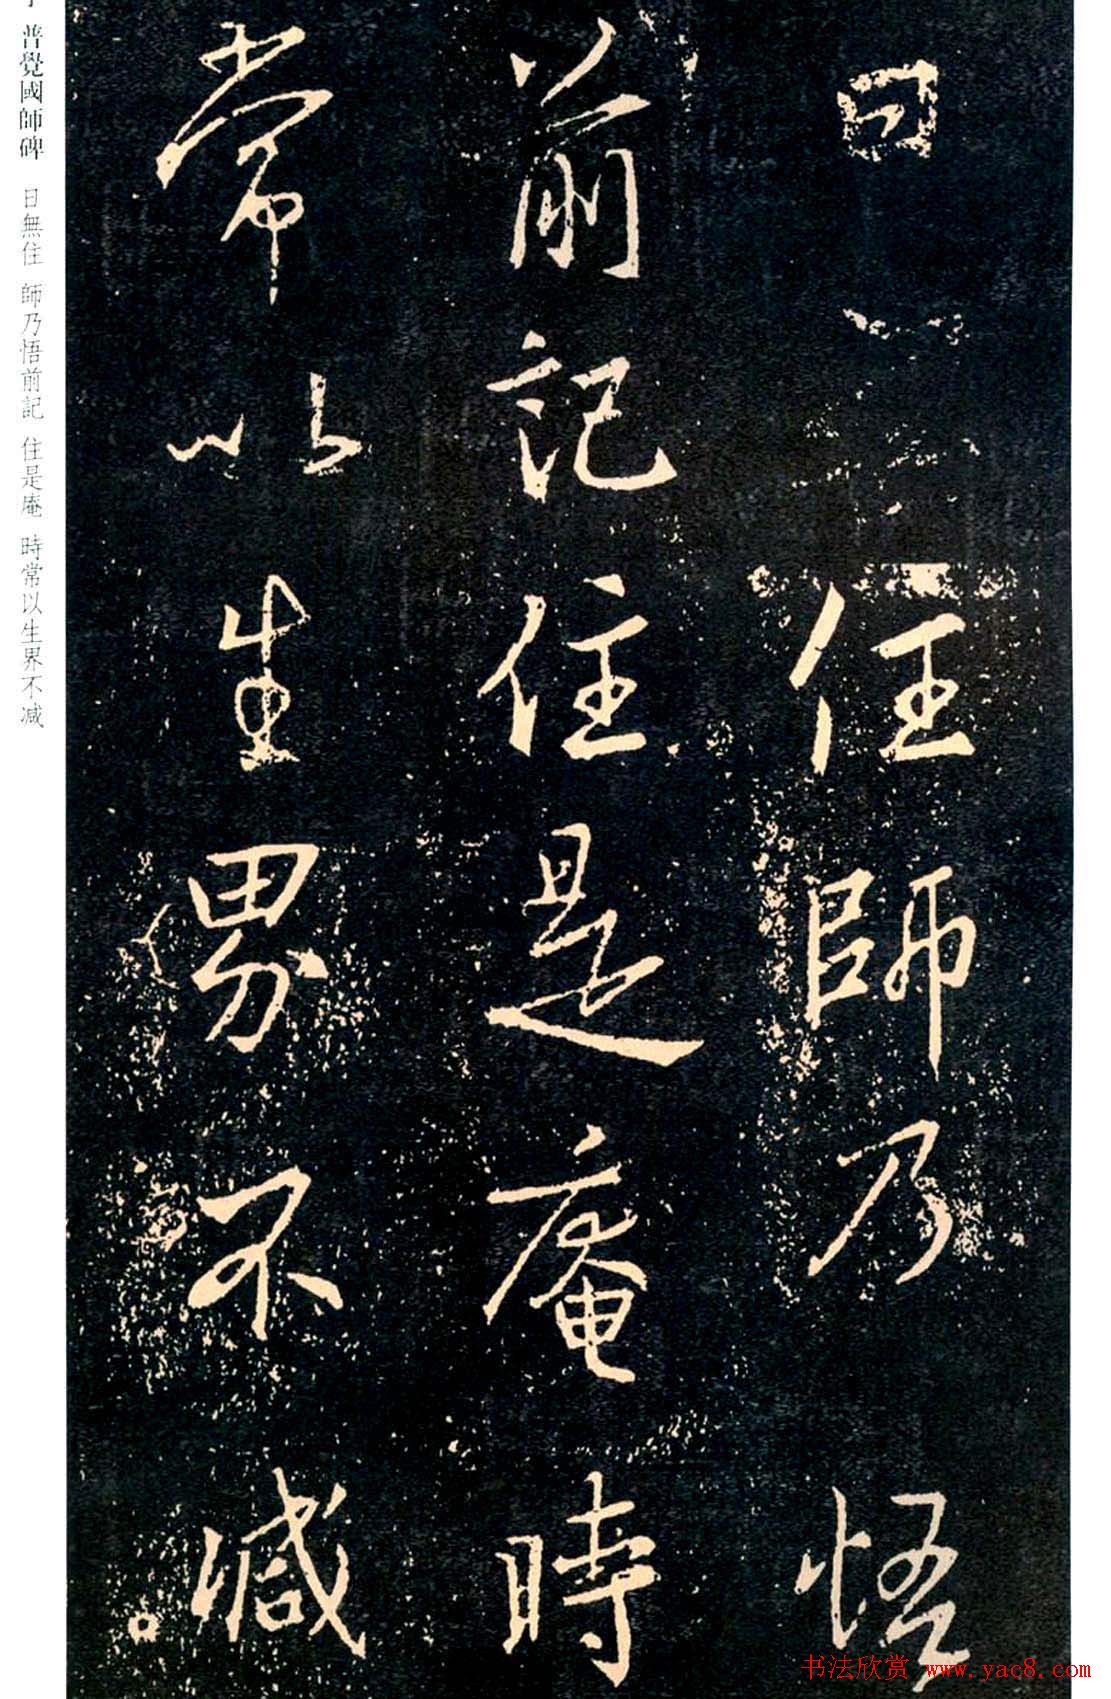 曰
住師乃悟
前記住是庵時
常以生界不減
普覺國師碑 日無住 師乃悟前記 住是庵 時常以生界不减
书法欣赏 www.yac8.com